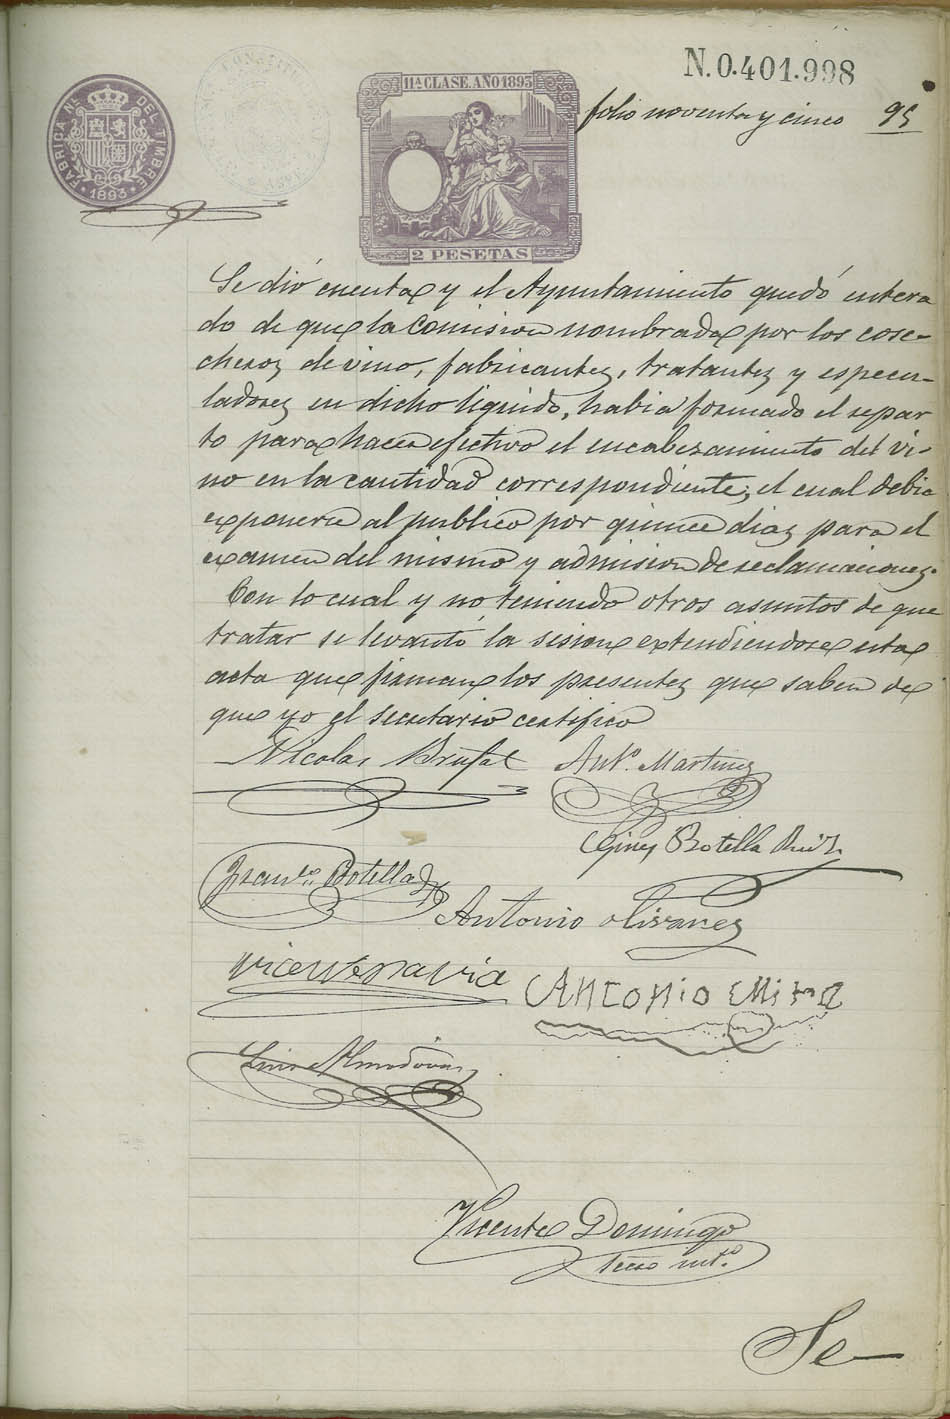 N.0.401.998
FABRICA NL. DEL TIMBRE
1893
11ª CLASE. AÑO 1893
2 PESETAS
folio noventa y cinco 95
Se dió cuenta y el Ayuntamiento quedó entera
do de que la Comision nombrada por los cose-
cheros de vino, fabricantes, tratantes y especu-
ladores en dicho liquido, habia formado el repar
to para hacer efectivo el encabezamiento del vi-
no en la cantidad correspondiente, el cual debia
exponerse al publico por quince dias para el
examen del mismo y admision de reclamaciones.
Con lo cual y no teniendo otros asuntos de que
tratar se levantó la sesion extendiendose esta
acta que firman los presentes que saben de
que yo el secretario certifico
Nicolas Brufal Antº. Martinez
Gines Botella Ruiz.
Franco. Botella
Antonio Olivares
Vicente Navia
Antonio Mira
Luis Almodovar
Vicente Domingo
Secro intº.
Se